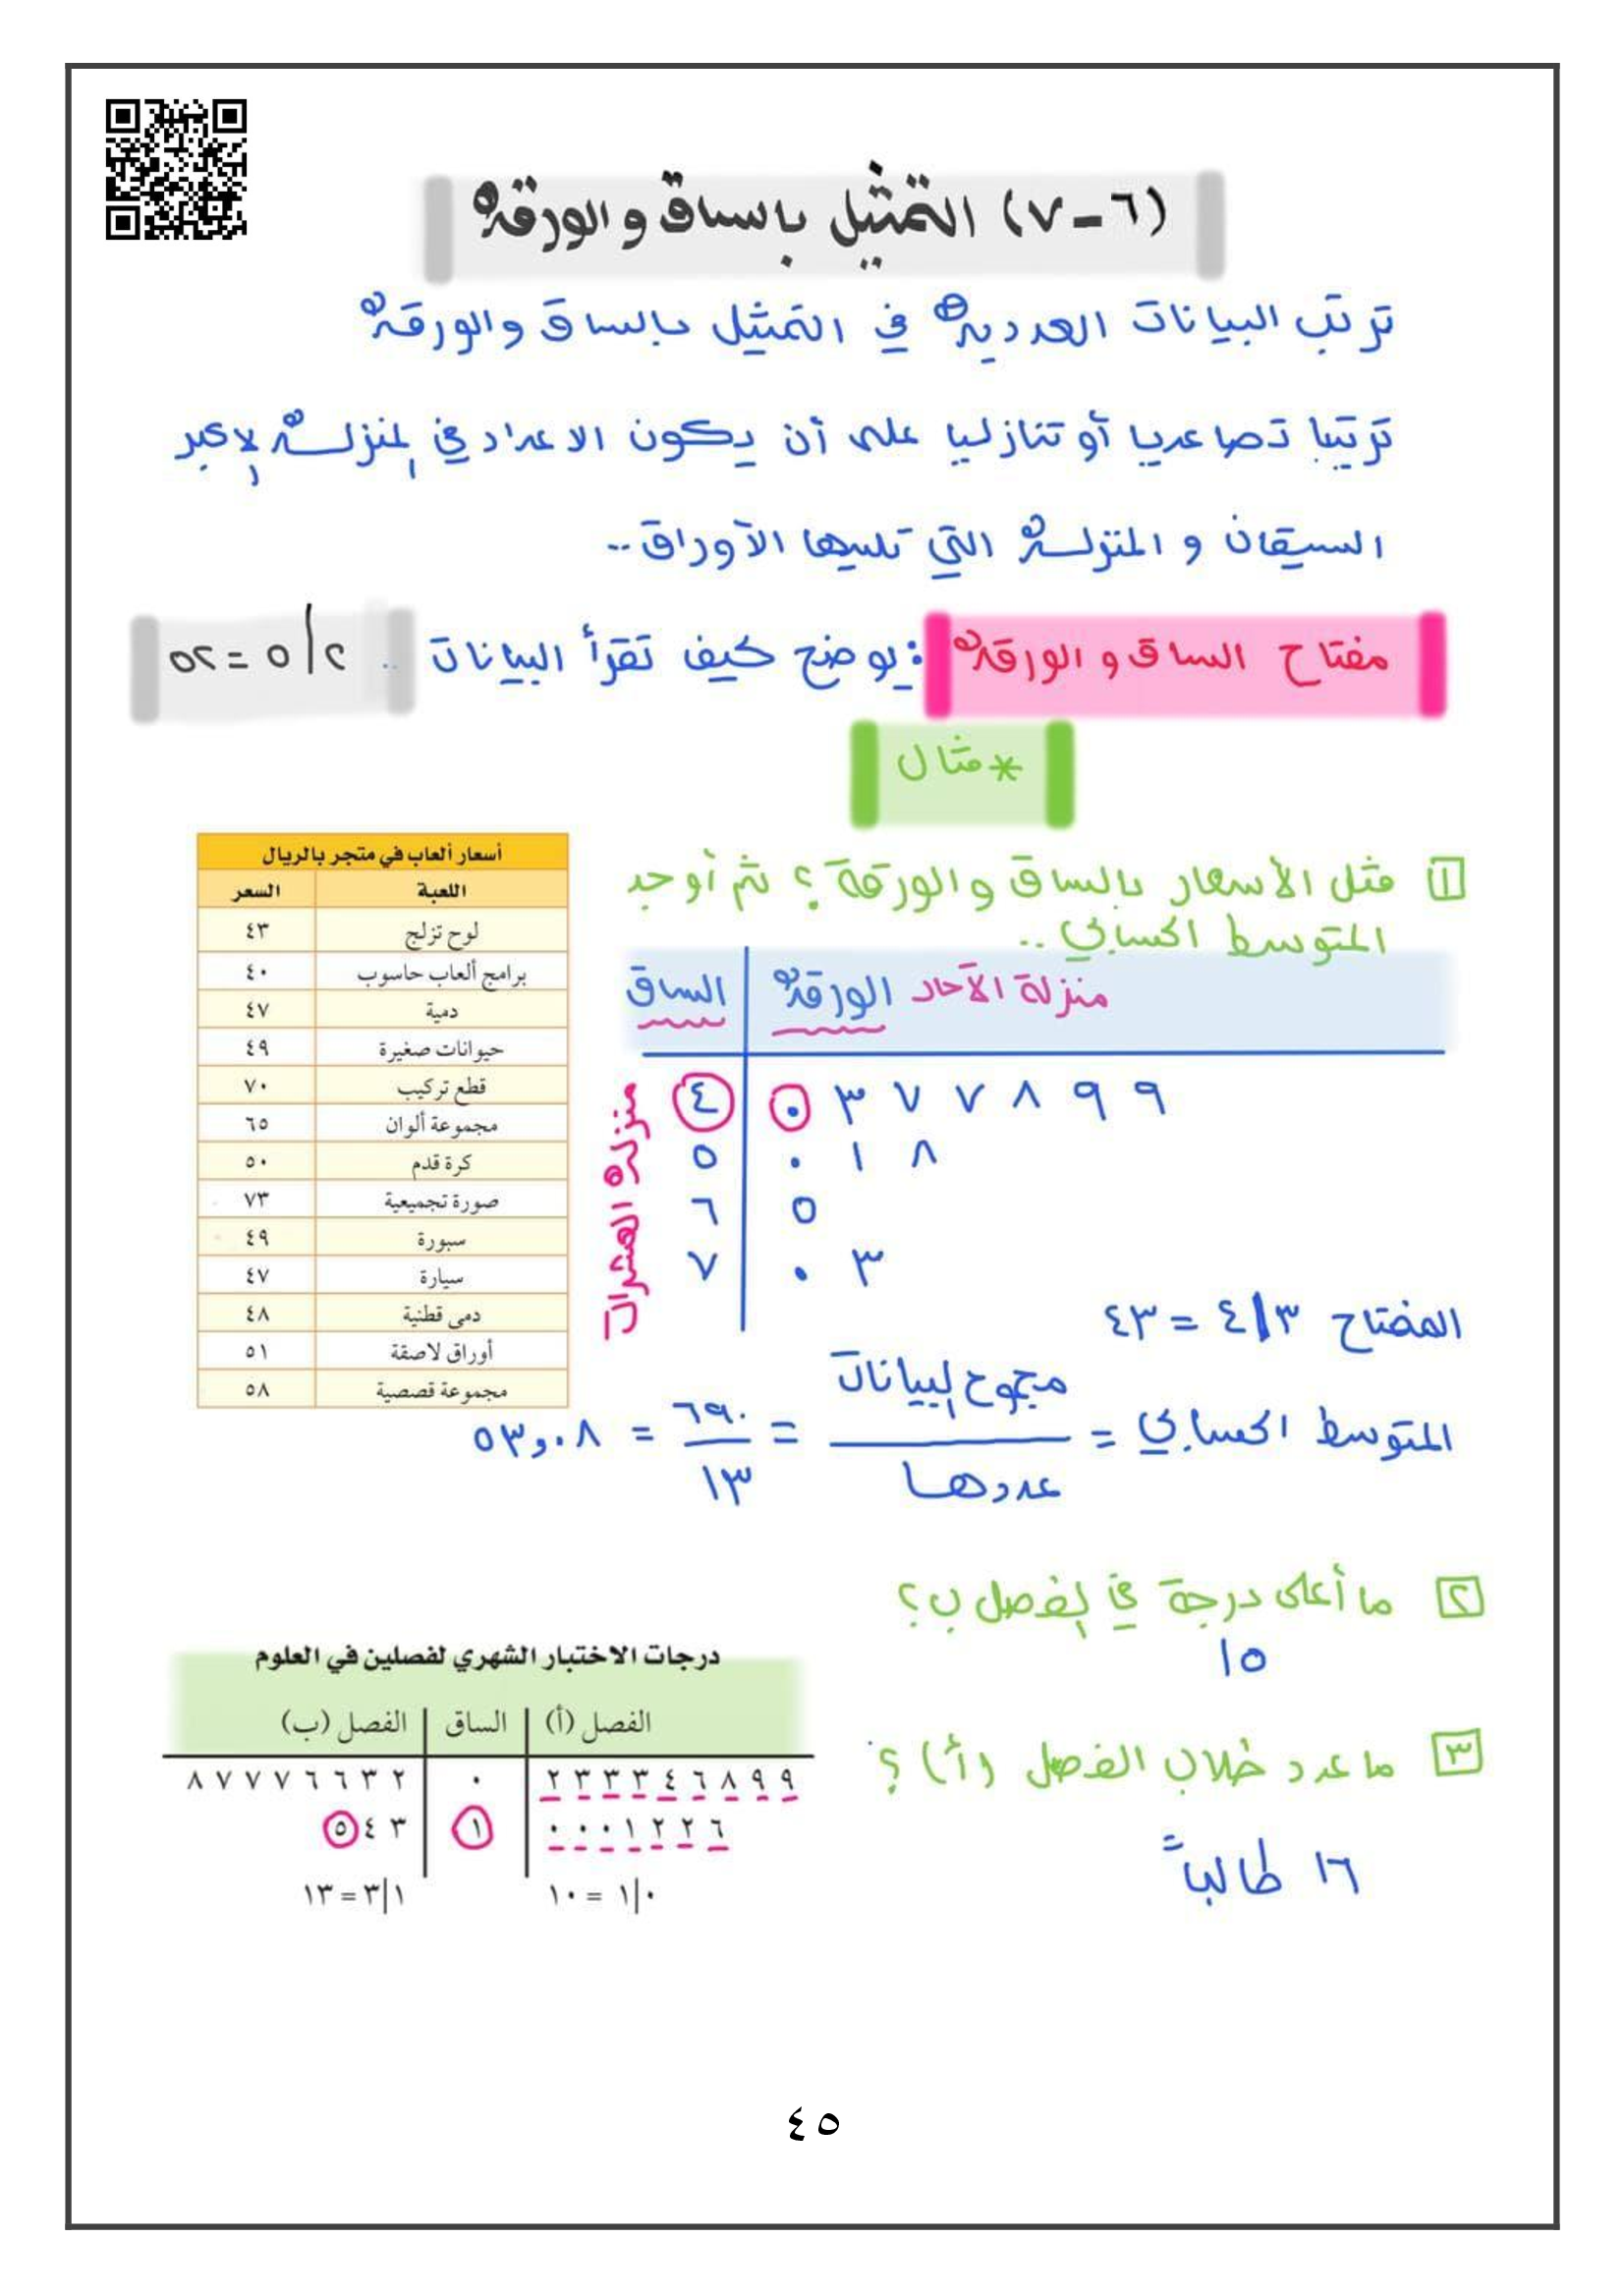 (٦-٧) التمثيل بالساق والورقة
ترتب البيانات العددية في التمثيل بالساق والورقة
ترتيبا تصاعديا أو تنازليا على أن يكون الاعداد في المنزلة الاكبر
السيقان و المنزلة التي تليها الأوراق..
مفتاح الساق و الورقة : يوضح كيف تقرأ البيانات .. ٢|٥ = ٢٥
* مثال
١ مثل الأسعار بالساق والورقة؟ ثم أوجد
المتوسط الحسابي ..
أسعار ألعاب في متجر بالريال
اللعبة السعر
لوح تزلج ٤٣
برامج ألعاب حاسوب ٤٠
دمية ٤٧
حيوانات صغيرة ٤٩
قطع تركيب ٧٠
مجموعة ألوان ٦٥
كرة قدم ٥٠
صورة تجميعية ٧٣
سبورة ٤٩
سيارة ٤٧
دمى قطنية ٤٨
أوراق لاصقة ٥١
مجموعة قصصية ٥٨
الساق | الورقة منزلة الآحاد
منزلة العشرات
٤ | ٠ ٣ ٧ ٧ ٨ ٩ ٩
٥ | ٠ ١ ٨
٦ | ٥
٧ | ٠ ٣
المفتاح ٣|٤ = ٤٣
المتوسط الحسابي = مجموع البيانات / عددها = ٦٩٠ / ١٣ = ٥٣,٠٨
٢ ما أعلى درجة في الفصل ب؟
١٥
٣ ما عدد طلاب الفصل (أ)؟
١٦ طالباً
درجات الاختبار الشهري لفصلين في العلوم
الفصل (أ) | الساق | الفصل (ب)
٢ ٣ ٣ ٣ ٤ ٦ ٨ ٩ ٩ | ٠ | ٨ ٧ ٧ ٧ ٦ ٦ ٣ ٢
٠ ٠ ٠ ١ ٢ ٢ ٦ | ١ | ٥ ٤ ٣
١٠ = ١|٠
١٣ = ٣|١
٤٥